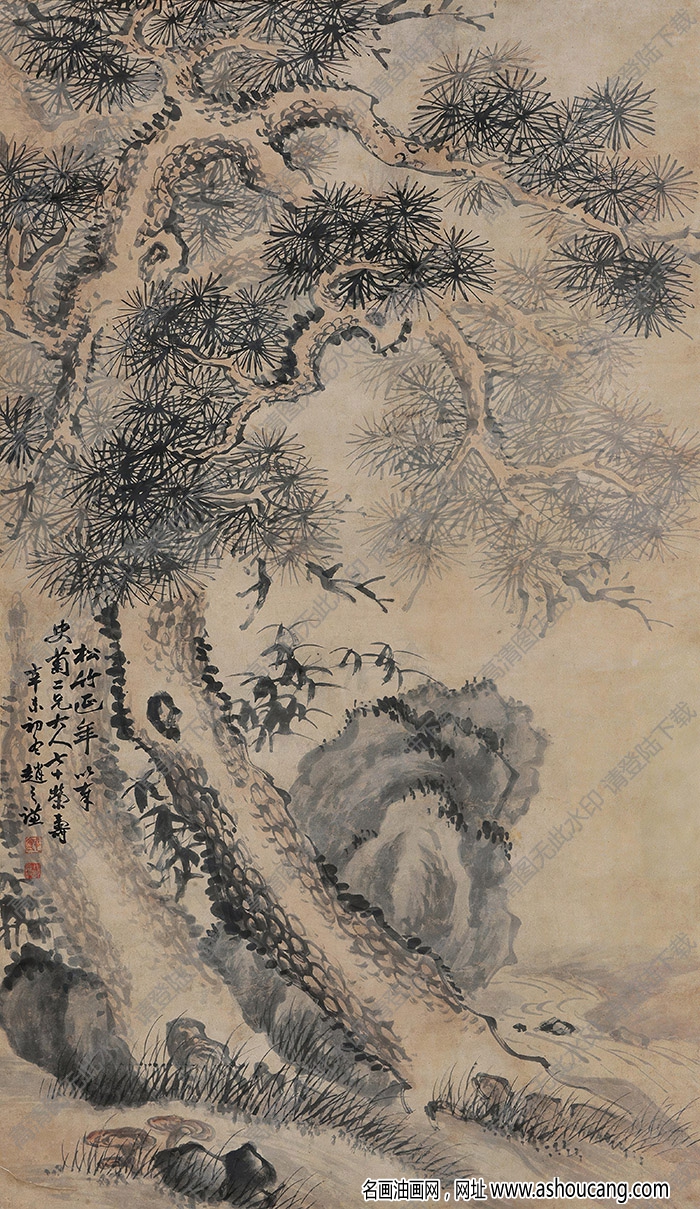 松竹延年 以奉
史菊二兄大人七十荣寿
辛未初冬赵之谦
名画油画网，网址 www.ashoucang.com
高清图无此水印·请登陆下载